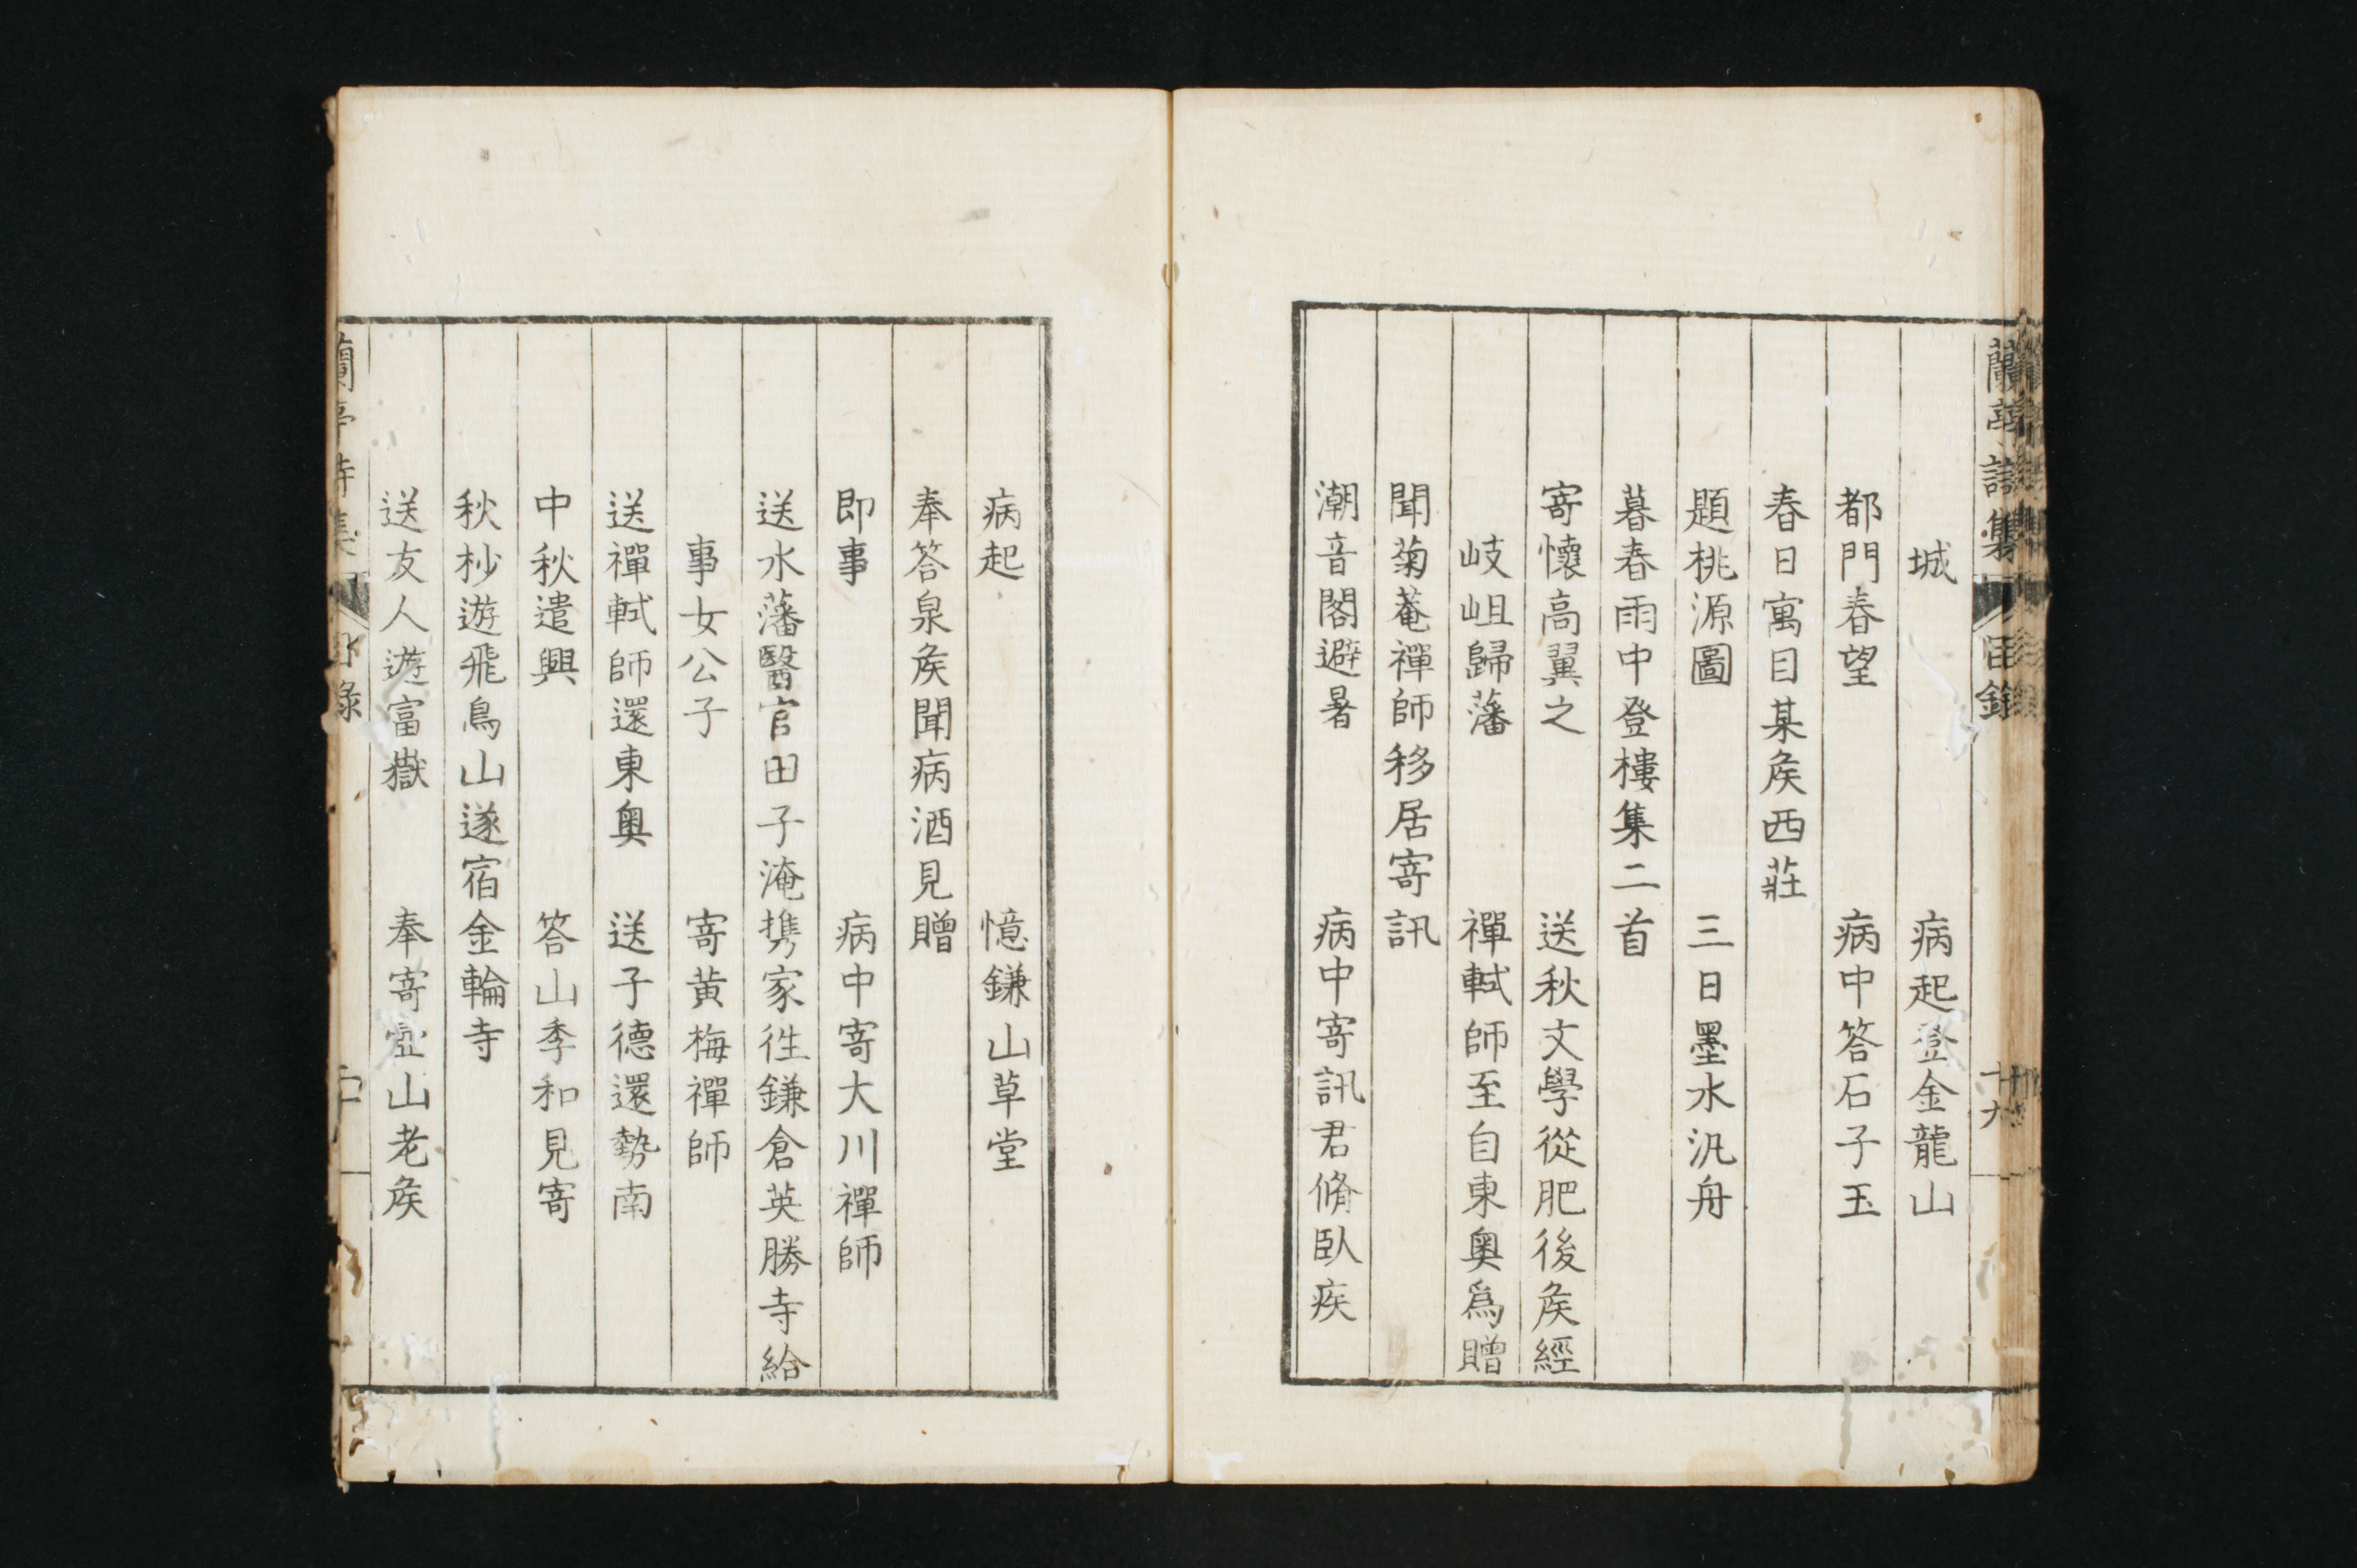 蘭亭詩集 目録 十九
城 病起登金龍山
都門春望 病中答石子玉
春日寓目某矦西莊
題桃源圖 三日墨水汎舟
暮春雨中登樓集二首
寄懷高翼之 送秋文學從肥後矦經
岐岨歸藩 禪軾師至自東奥爲贈
聞菊菴禪師移居寄訊
潮音閣避暑 病中寄訊君脩臥疾
病起 憶鎌山草堂
奉答泉矦聞病酒見贈
即事 病中寄大川禪師
送水藩醫官田子淹携家徃鎌倉英勝寺給
事女公子 寄黄梅禪師
送禪軾師還東奥 送子德還勢南
中秋遣興 答山季和見寄
秋杪遊飛鳥山遂宿金輪寺
送友人遊富嶽 奉寄壺山老矦
蘭亭詩集 目録